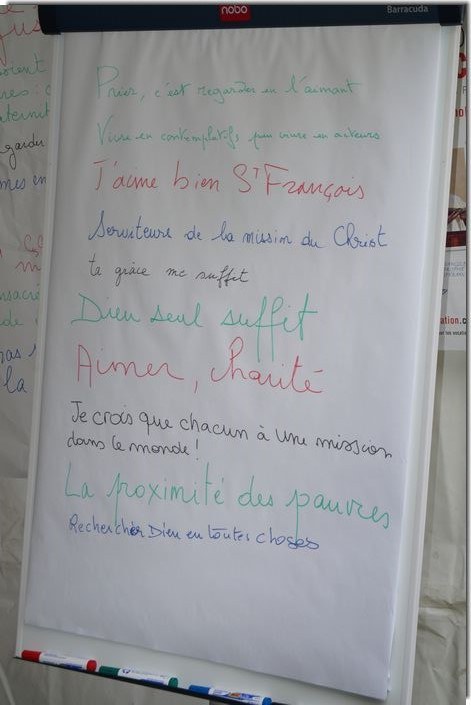 nobo
Barracuda
Prier, c'est regarder en l'aimant
Vivre en contemplatifs pour vivre en acteurs
J'aime bien St François
Serviteurs de la mission du Christ
ta grâce me suffit
Dieu seul suffit
Aimer, charité
Je crois que chacun à une mission
dans le monde !
La proximité des pauvres
Rechercher Dieu en toutes choses
garder
mes en
la